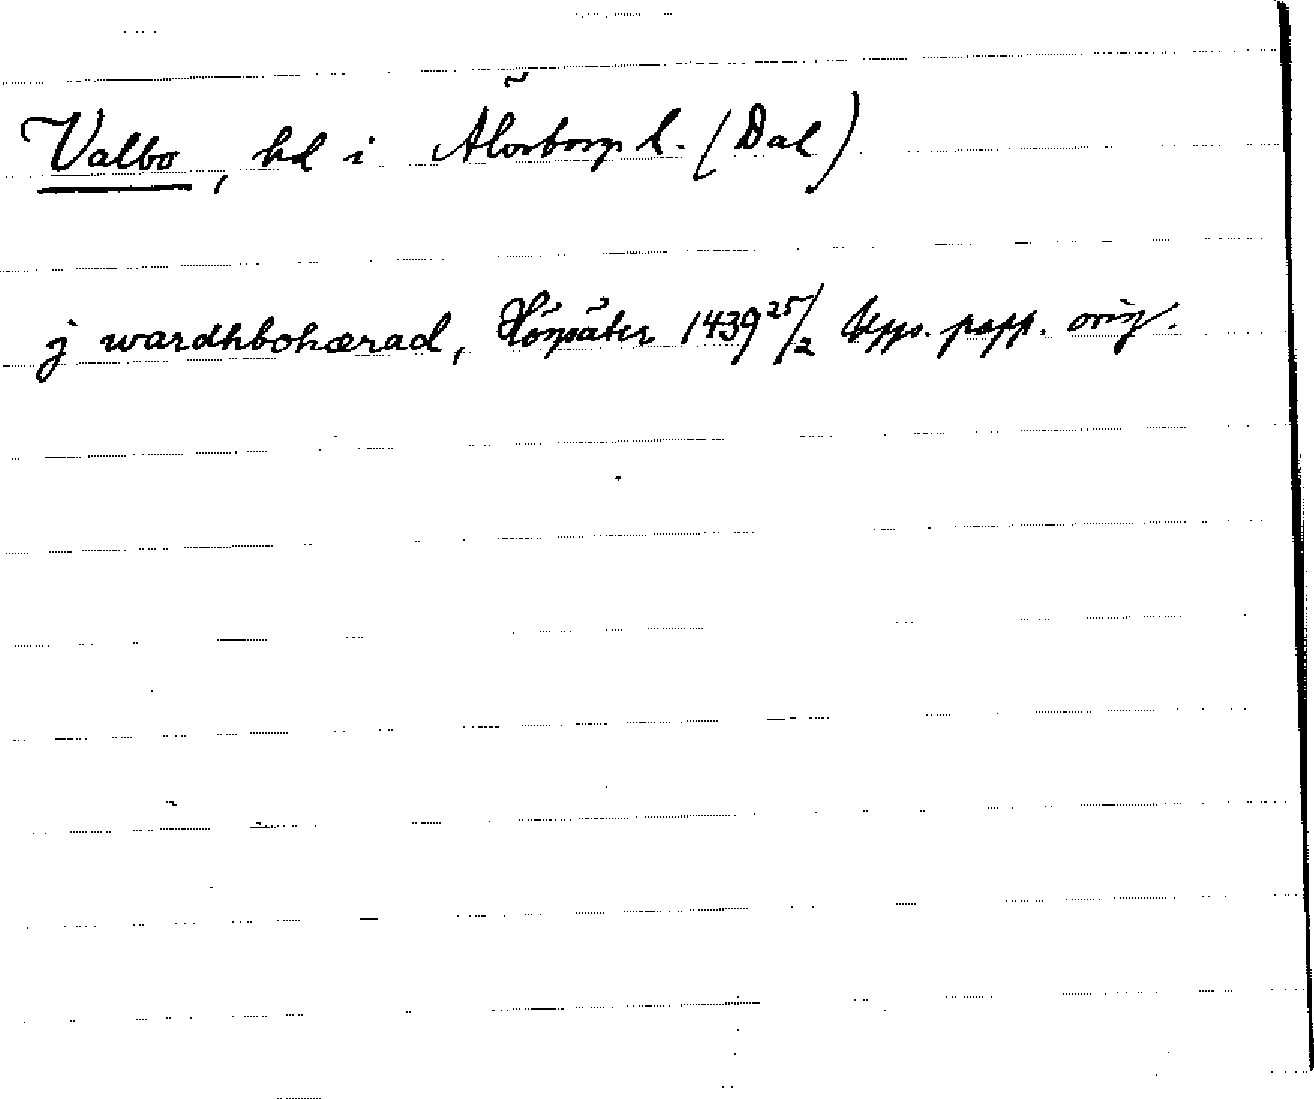 Valbo, hd i Älvsborgs l. (Dal)
j wardhbohærad, Högsäter 1439 25/2 Upps. papp. orig.